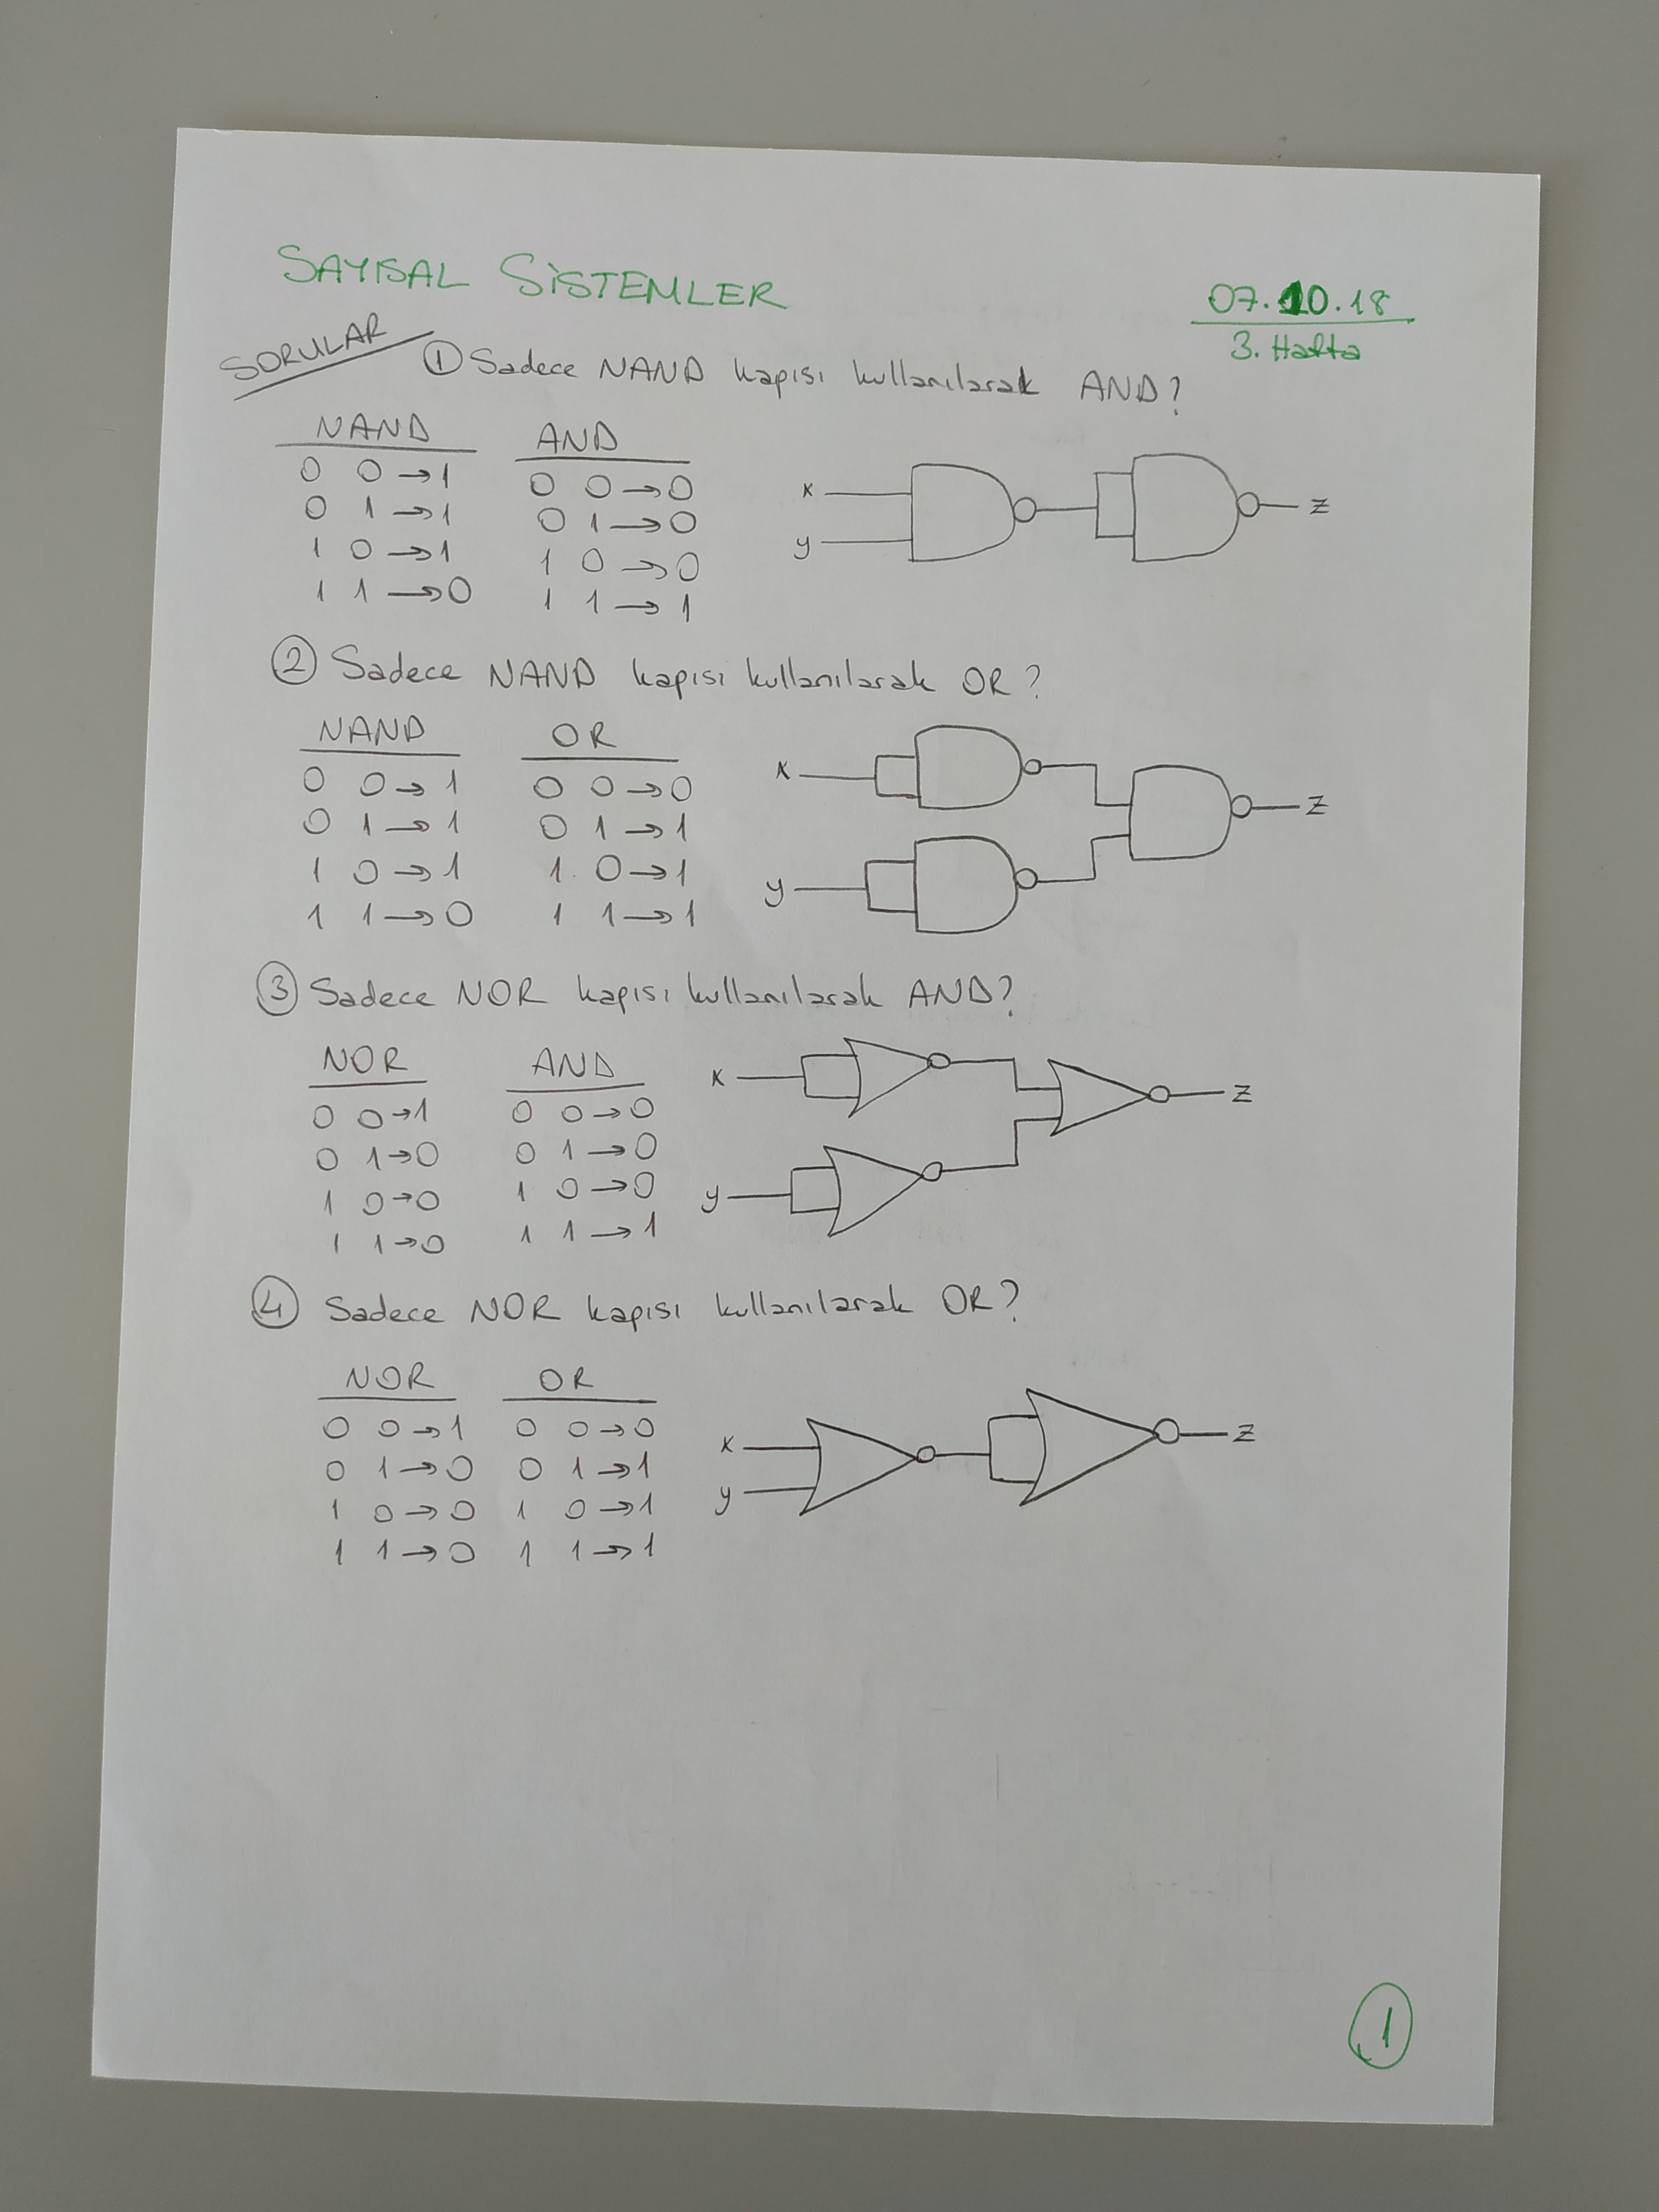 SAYISAL SİSTEMLER
07.10.18
3. Hafta
SORULAR
① Sadece NAND kapısı kullanılarak AND?
NAND AND
0 0→1 0 0→0
0 1→1 0 1→0
1 0→1 1 0→0
1 1→0 1 1→1
x
y
z
② Sadece NAND kapısı kullanılarak OR?
NAND OR
0 0→1 0 0→0
0 1→1 0 1→1
1 0→1 1 0→1
1 1→0 1 1→1
x
y
z
③ Sadece NOR kapısı kullanılarak AND?
NOR AND
0 0→1 0 0→0
0 1→0 0 1→0
1 0→0 1 0→0
1 1→0 1 1→1
x
y
z
④ Sadece NOR kapısı kullanılarak OR?
NOR OR
0 0→1 0 0→0
0 1→0 0 1→1
1 0→0 1 0→1
1 1→0 1 1→1
x
y
z
①